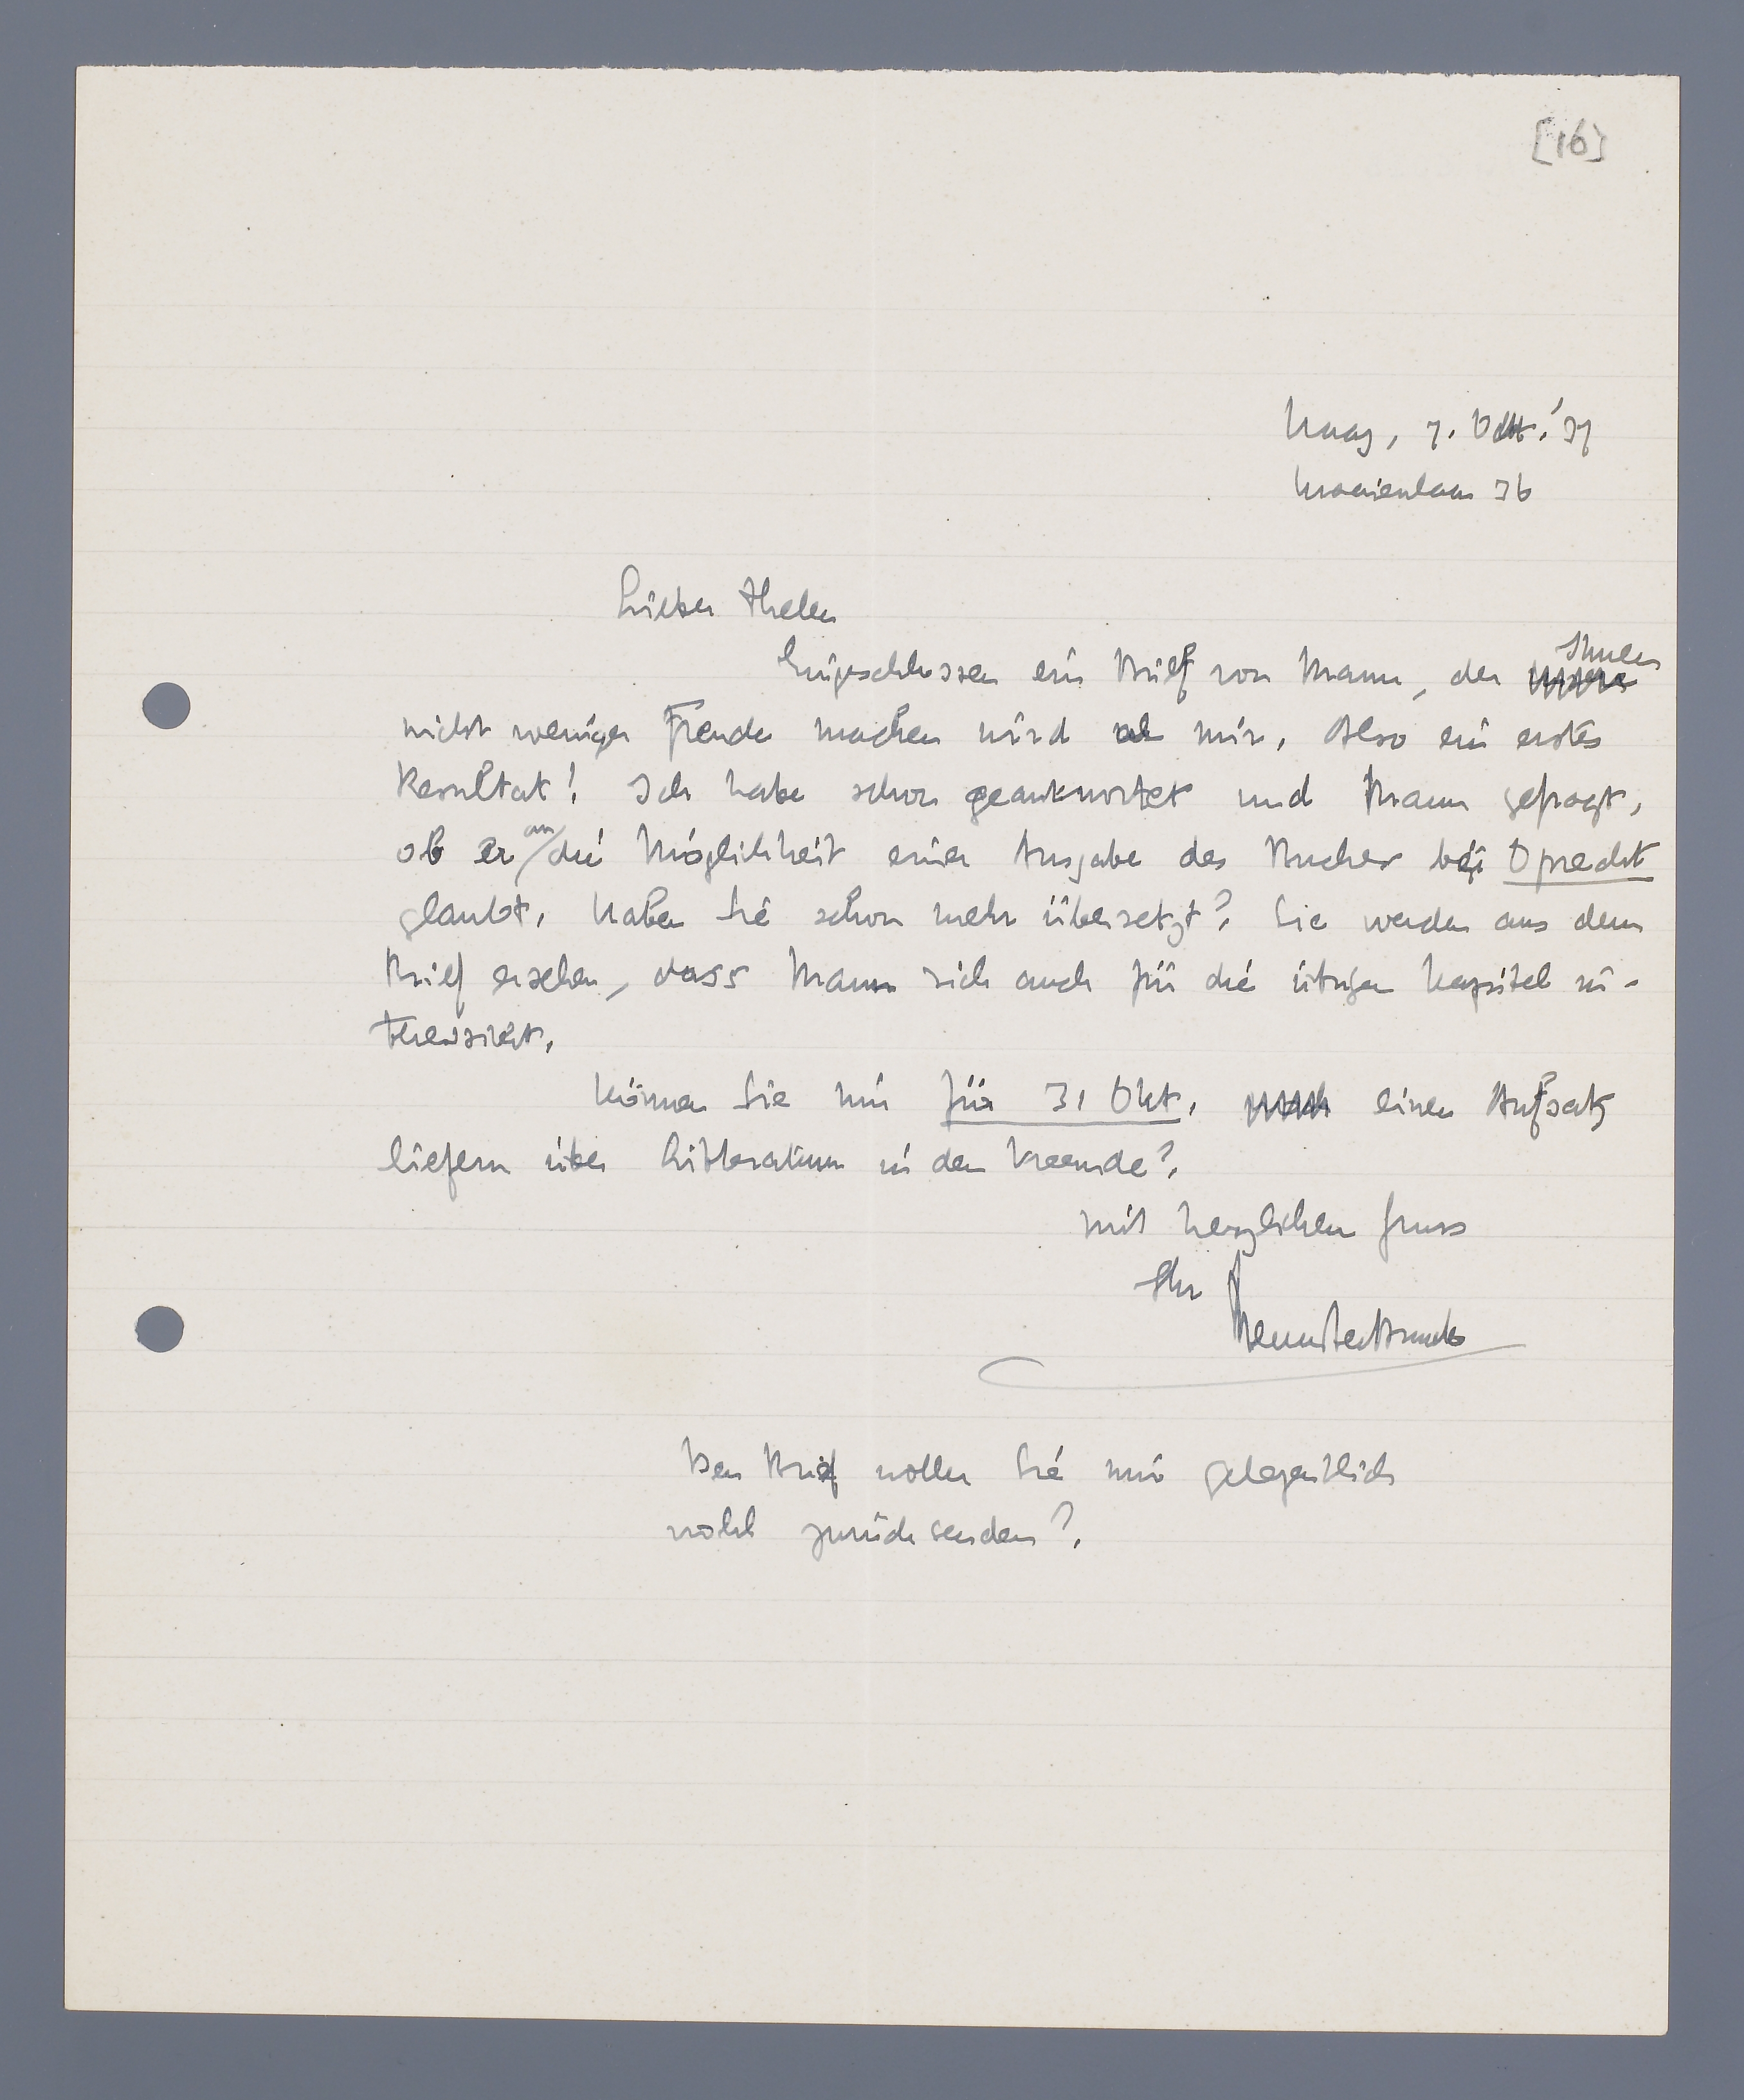 [16]
Haag, 7. Okt. '37
Kraaienlaan 36
Lieber Thelen
Eingeschlossen ein Brief von Mann, der Ihnen
nicht weniger Freude machen wird als mir. Also ein erstes
Resultat! Ich habe schon geantwortet und Mann gefragt,
ob er an die Möglichkeit einer Ausgabe des Buches bei Oprecht
glaubt. Haben Sie schon mehr übersetzt? Sie werden aus dem
Brief ersehen, dass Mann sich auch für die übrigen Kapitel in-
teressiert.
Können Sie mir für 31 Okt. einen Aufsatz
liefern über Litteratur in der Vreemde?
Mit herzlichem Gruss
Ihr
Menno ter Braak
Den Brief wollen Sie mir gelegentlich
wohl zurücksenden?